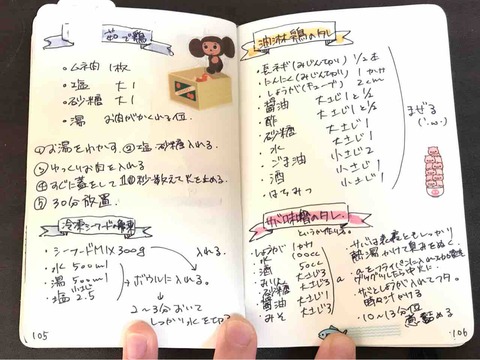 茹で鶏
・ムネ肉 1枚
・塩 大1
・砂糖 大1
・湯 お肉がかくれる位
①お湯をわかす。②塩、砂糖入れる。
③ゆっくりお肉を入れる。
④すぐに蓋をして10秒数えて火を止める。
⑤30分放置。
冷凍シーフードの解凍
・シーフードMIX 300g
・水 500ml
・湯 500ml
・塩 小さじ2.5
→ボウルに入れる。
入れる。
2〜3分おいて
しっかり水を切る
105
油淋鶏のタレ
・長ネギ(みじん切り) 1/2本
・にんにく(みじん切り) 1カケ
・しょうが(チューブ) 2cm
・醤油 大さじ1と1/2
・酢 大さじ1と1/2
・砂糖 大さじ1
・水 大さじ1
・ごま油 小さじ2
・酒 小さじ1
・はちみつ 小さじ1
まぜる
('ω')
サバ味噌のタレ
というか作り方。
しょうが 1カケ
水 100cc
酒 50cc
みりん 大さじ3
砂糖 大さじ3
醤油 大さじ1
みそ 大さじ3
a
・サバは表裏ともしっかり
熱湯かけて臭みをぬく。
・aをフライパンに入れ
グツグツしたら中火に。
・サバとしょうが入れてフタ。
時々汁かける
・10〜13分位
煮詰める
106